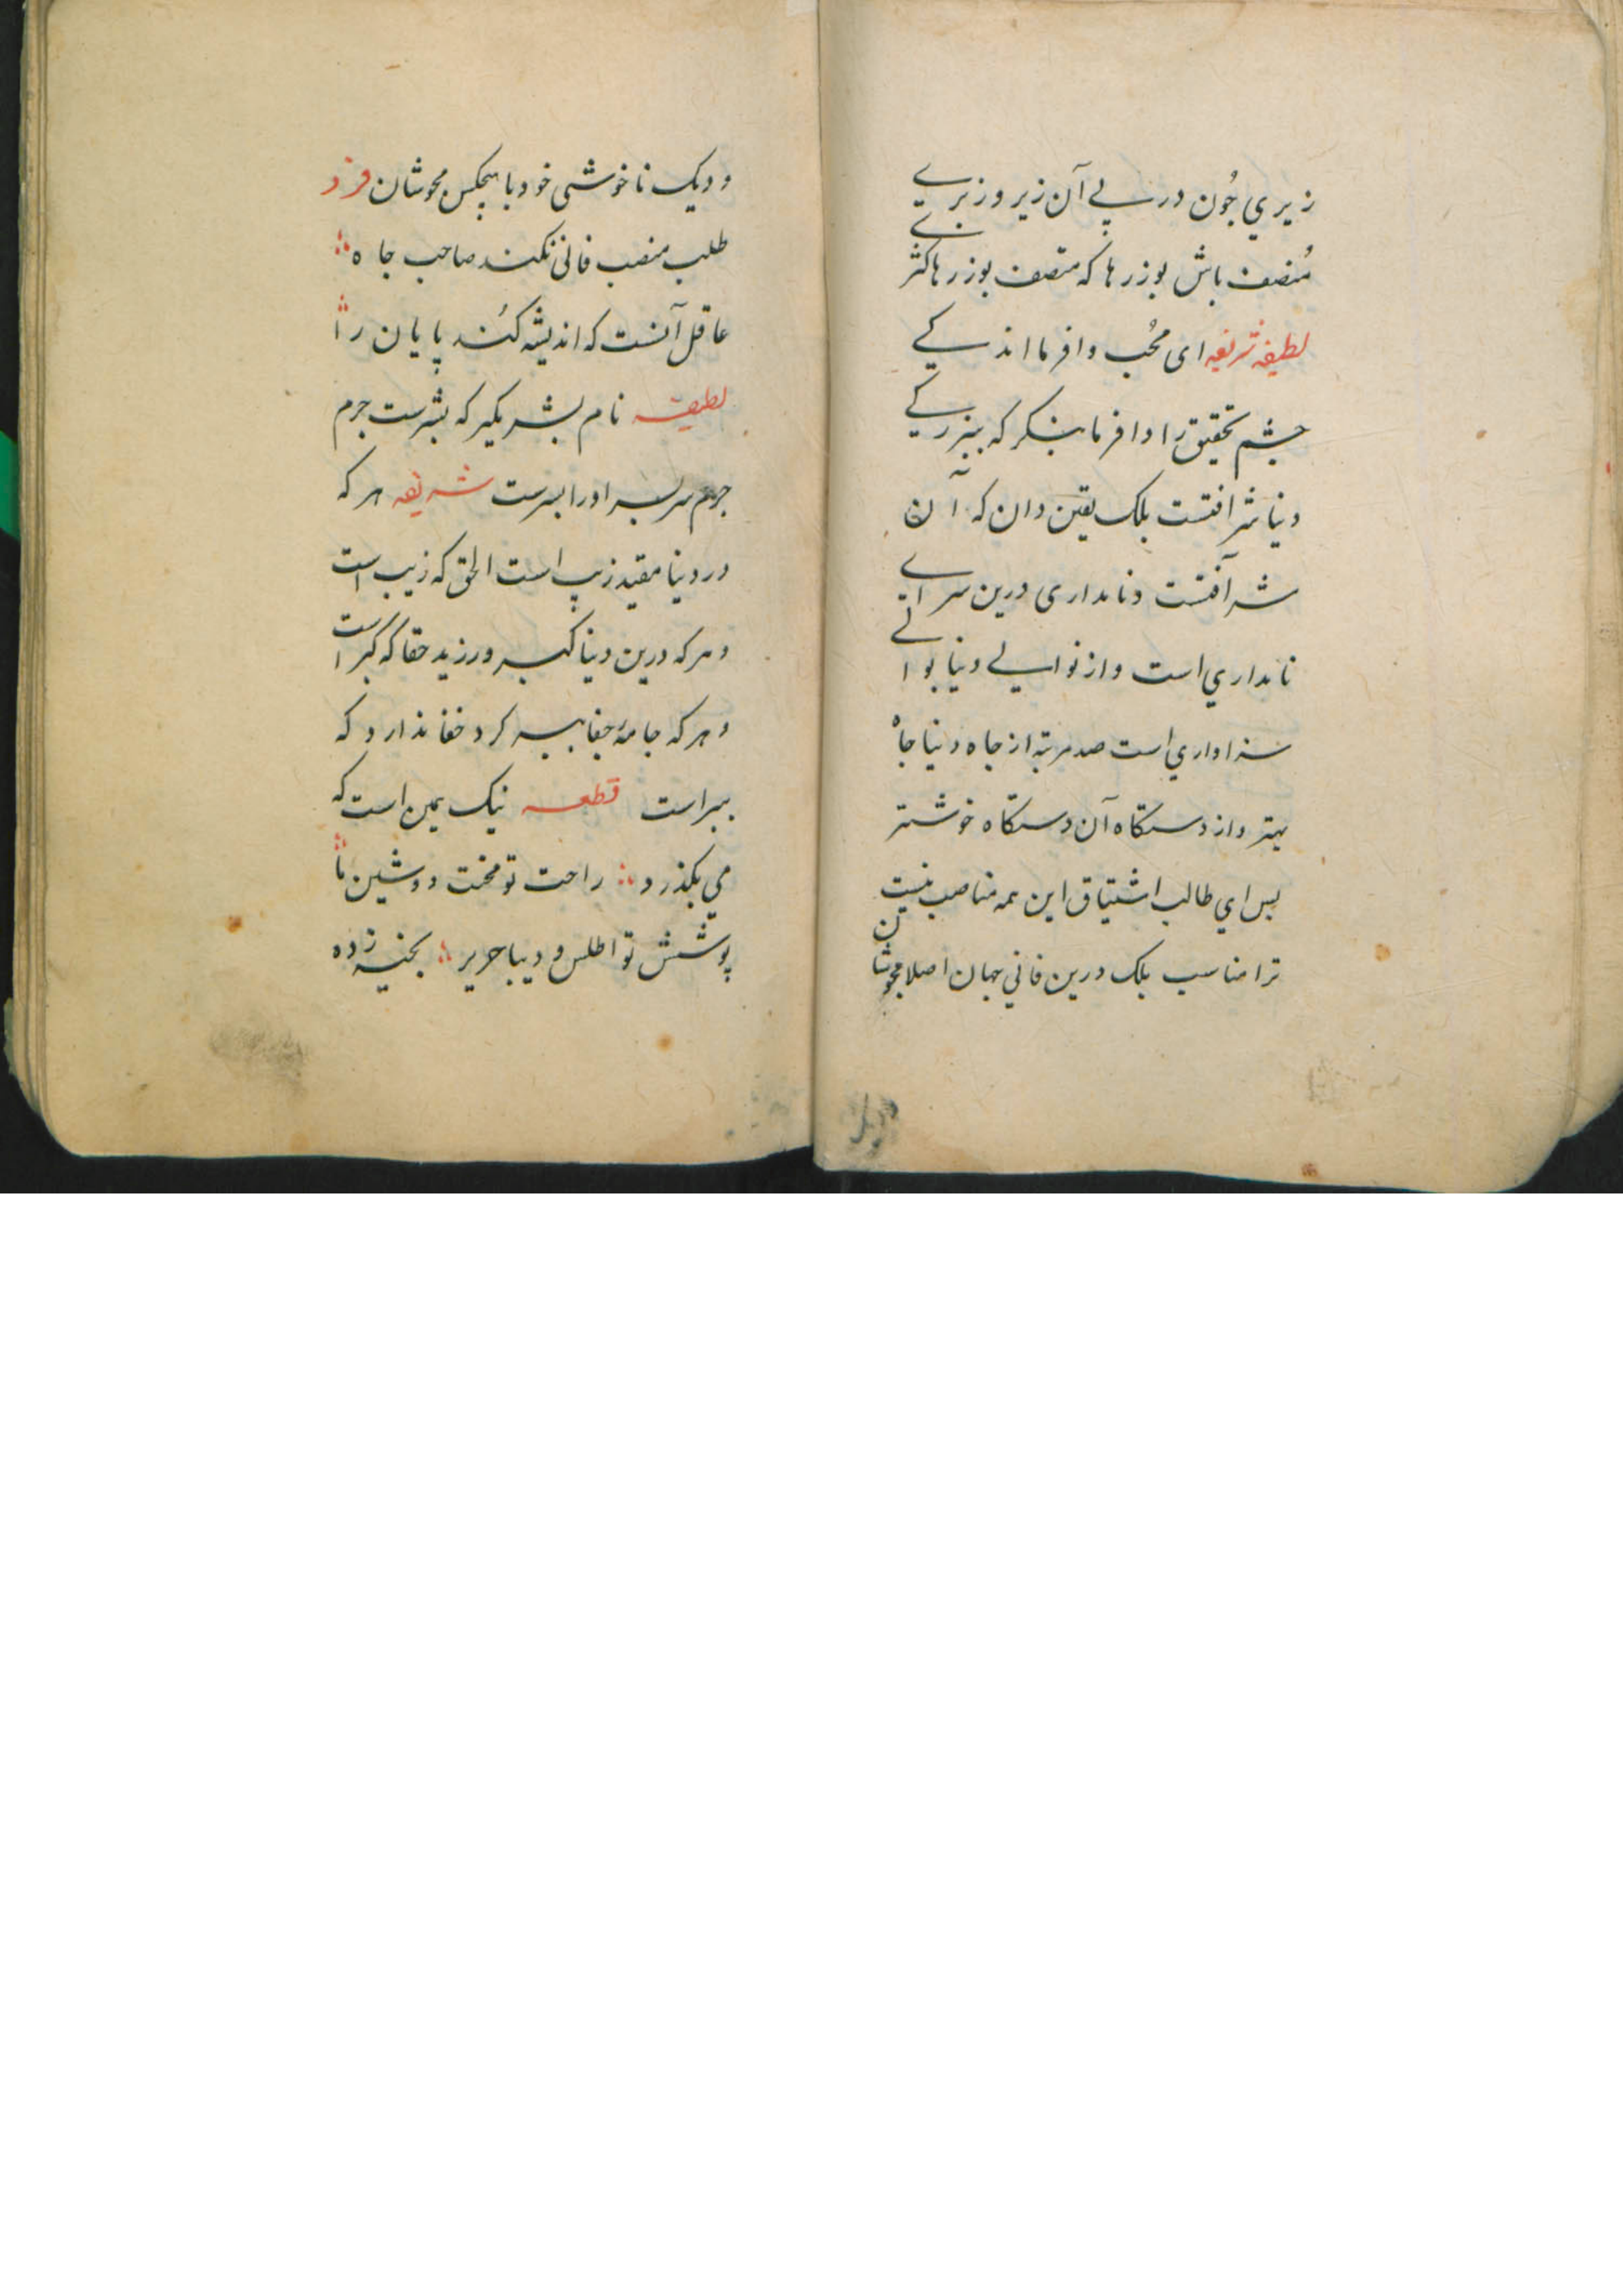 زیري جُون در پے آن زیر و زبرے
مُنصف باش بوزرها که متصف بوزرها کثرے
لطیفه شریفه ای مُحب وافر ما اندکے
چشم تحقیق را وا فرما بنکر که بیزرکے
دنیا شر افتست بلک یقین دان که آن
شر آفتست و نامداری درین سراے
نامداري است و از نوایے دنیا بوالے
سزاواري است صد مرتبه از جاه دنیا جاه
بهتر و از دستکاه آن دستکاه خوشتر
بس اي طالب اشتیاق این همه مناصب نیست
ترا مناسب بلک درین فاني جهان اصلا مجوشان
و دیک ناخوشی خود با هیچکس مجوشان فرد
طلب منصب فانی نکند صاحب جاه
عاقل آنست که اندیشه کُند پایان را
لطیفه نام بشر بکیر که بشرست جرم
جرم سربسر او را بسرست شریفه هر که
در دنیا مقید زیب است الحق که زیب است
و هر که درین دنیا کبر ورزید حقا که کبر است
و هر که جامهٔ جفا ببر کرد خفا ندارد که
ببر است قطعه نیک یمین است که
مي بکذرد راحت تو محنت دوشین تا
پوشش تو اطلس و دیبا حریر بخیه زده